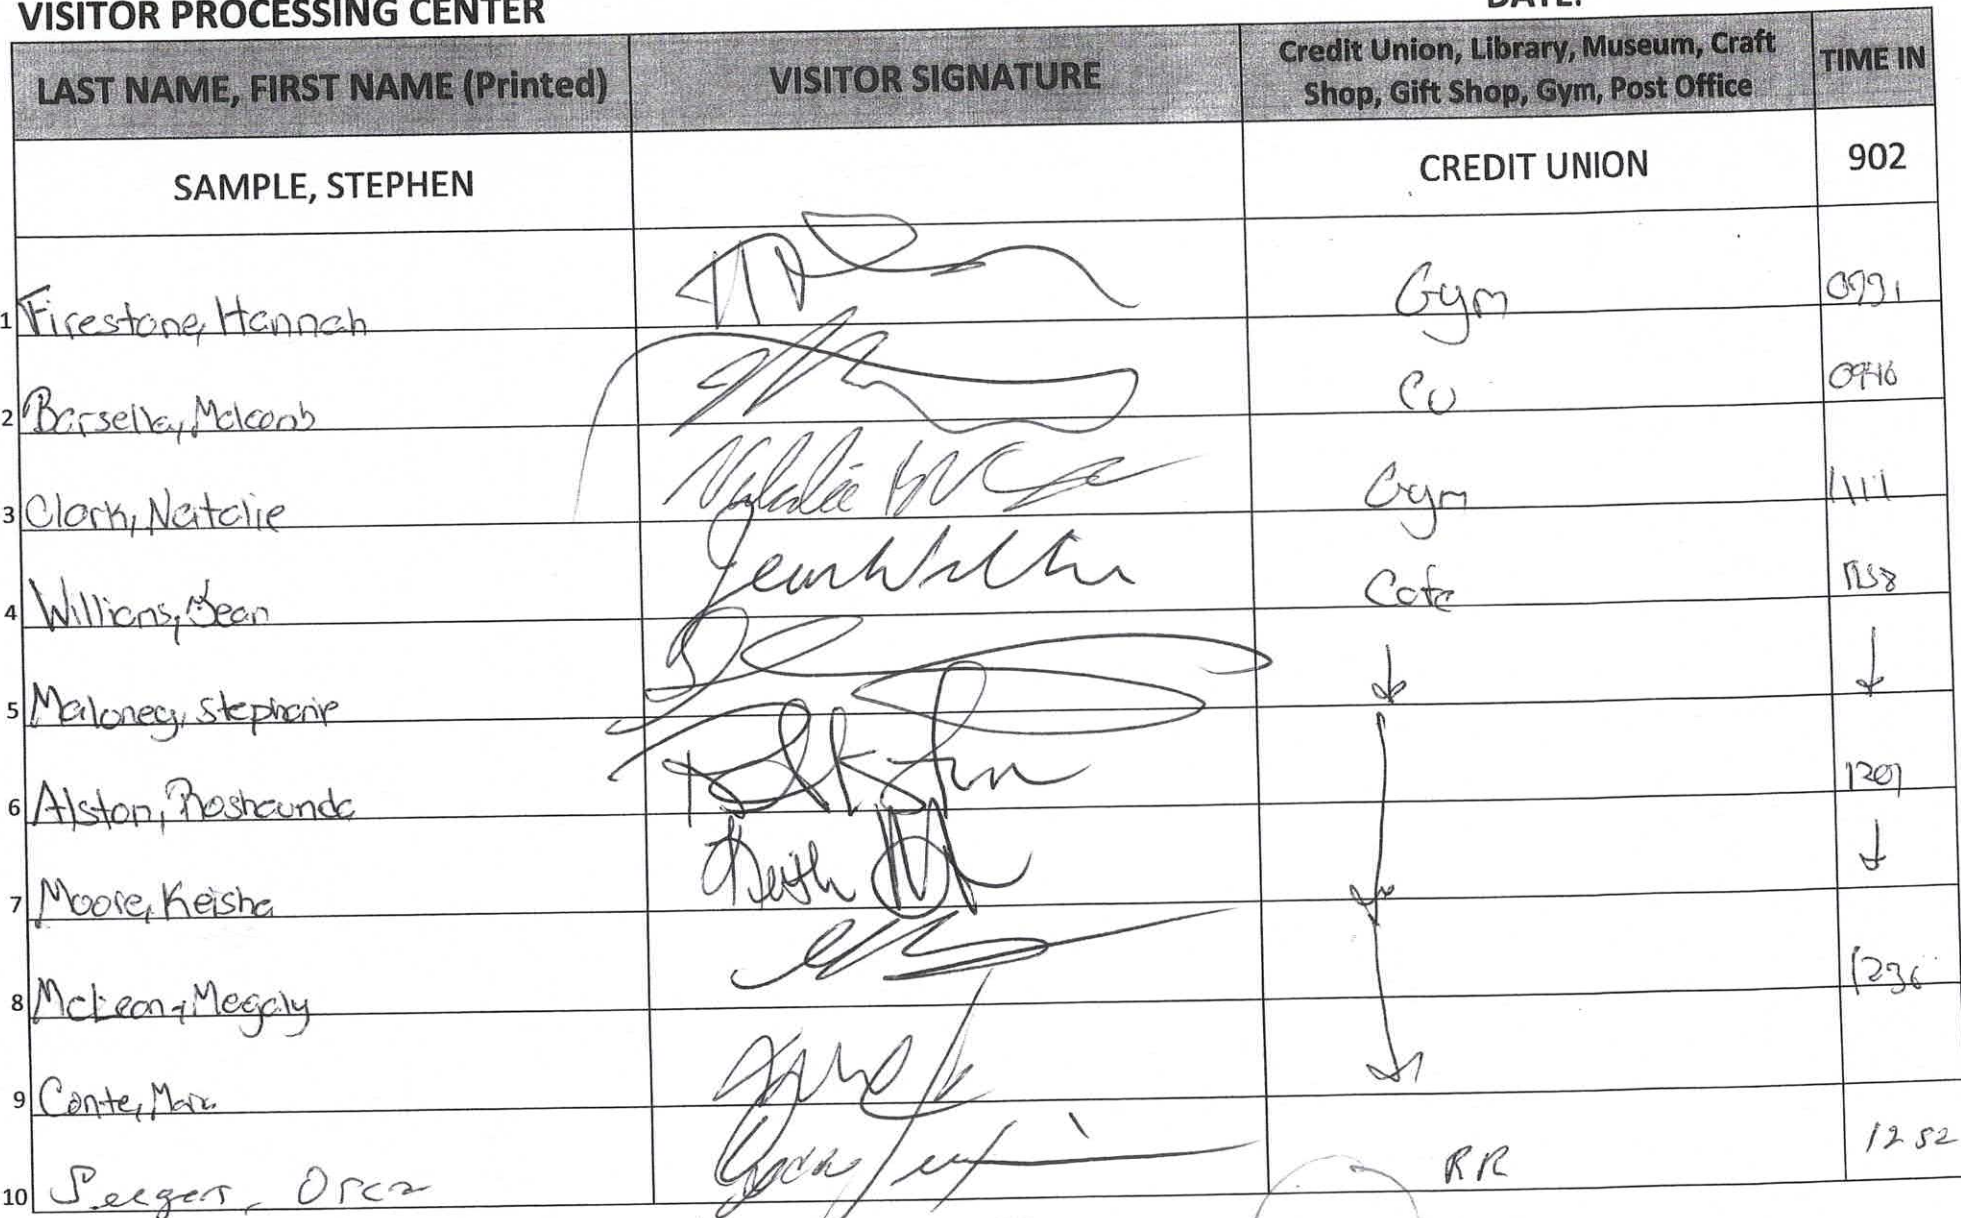 VISITOR PROCESSING CENTER DATE:
LAST NAME, FIRST NAME (Printed) VISITOR SIGNATURE Credit Union, Library, Museum, Craft Shop, Gift Shop, Gym, Post Office TIME IN
SAMPLE, STEPHEN CREDIT UNION 902
1 Firestone, Hannah Gym
2 Barsella, CU 0946
3 Clark, Natalie Natalie Gym 1111
4 Williams, Jean Jean Cafe 1158
5 Maloney, Stephanie ↓ ↓
6 Alston, Roshaunda 1207
7 Moore, Keisha ↓ ↓
8 McLean, Megaly 1236
9 Conte, Marc ↓
10 RR 1252